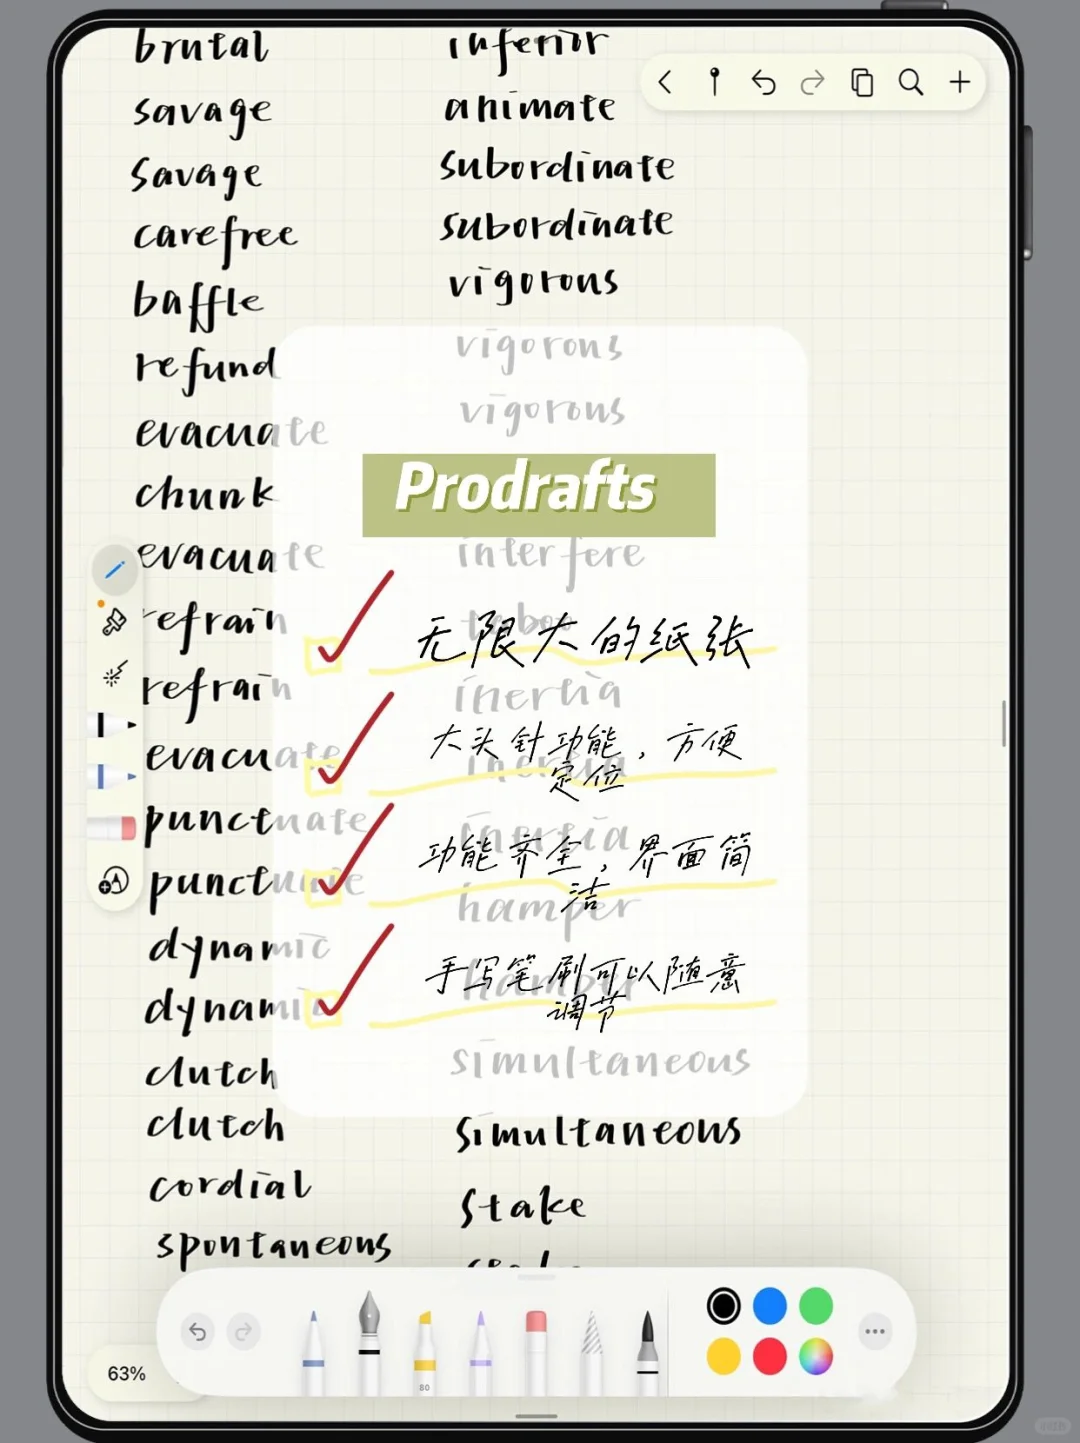 brutal
savage
savage
carefree
baffle
refund
evacuate
chunk
evacuate
refrain
refrain
evacuate
punctuate
punctuate
dynamic
dynamic
clutch
clutch
cordial
spontaneous
inferior
animate
subordinate
subordinate
vigorous
vigorous
vigorous
Prodrafts
interfere
taboo
无限大的纸张
inertia
大头针功能，方便
定位
inertia
inertia
功能齐全，界面简
洁
hamper
hamper
手写笔刷可以随意
调节
simultaneous
simultaneous
stake
63%
80